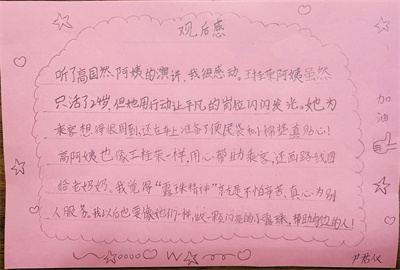 观后感
听了高国然阿姨的演讲，我很感动。王桂荣阿姨虽然
只活了24岁，但她用行动让平凡的岗位闪闪发光。她为
乘客想得很周到，还在车上准备了便民袋和小棉垫真贴心！
高阿姨也像王桂荣一样，用心帮助乘客，还画路线图
给老奶奶。我觉得“露珠精神”就是不怕辛苦，真心为别
人服务。我以后也要像她们一样，做一颗闪亮的小露珠，帮助身边的人！
加油